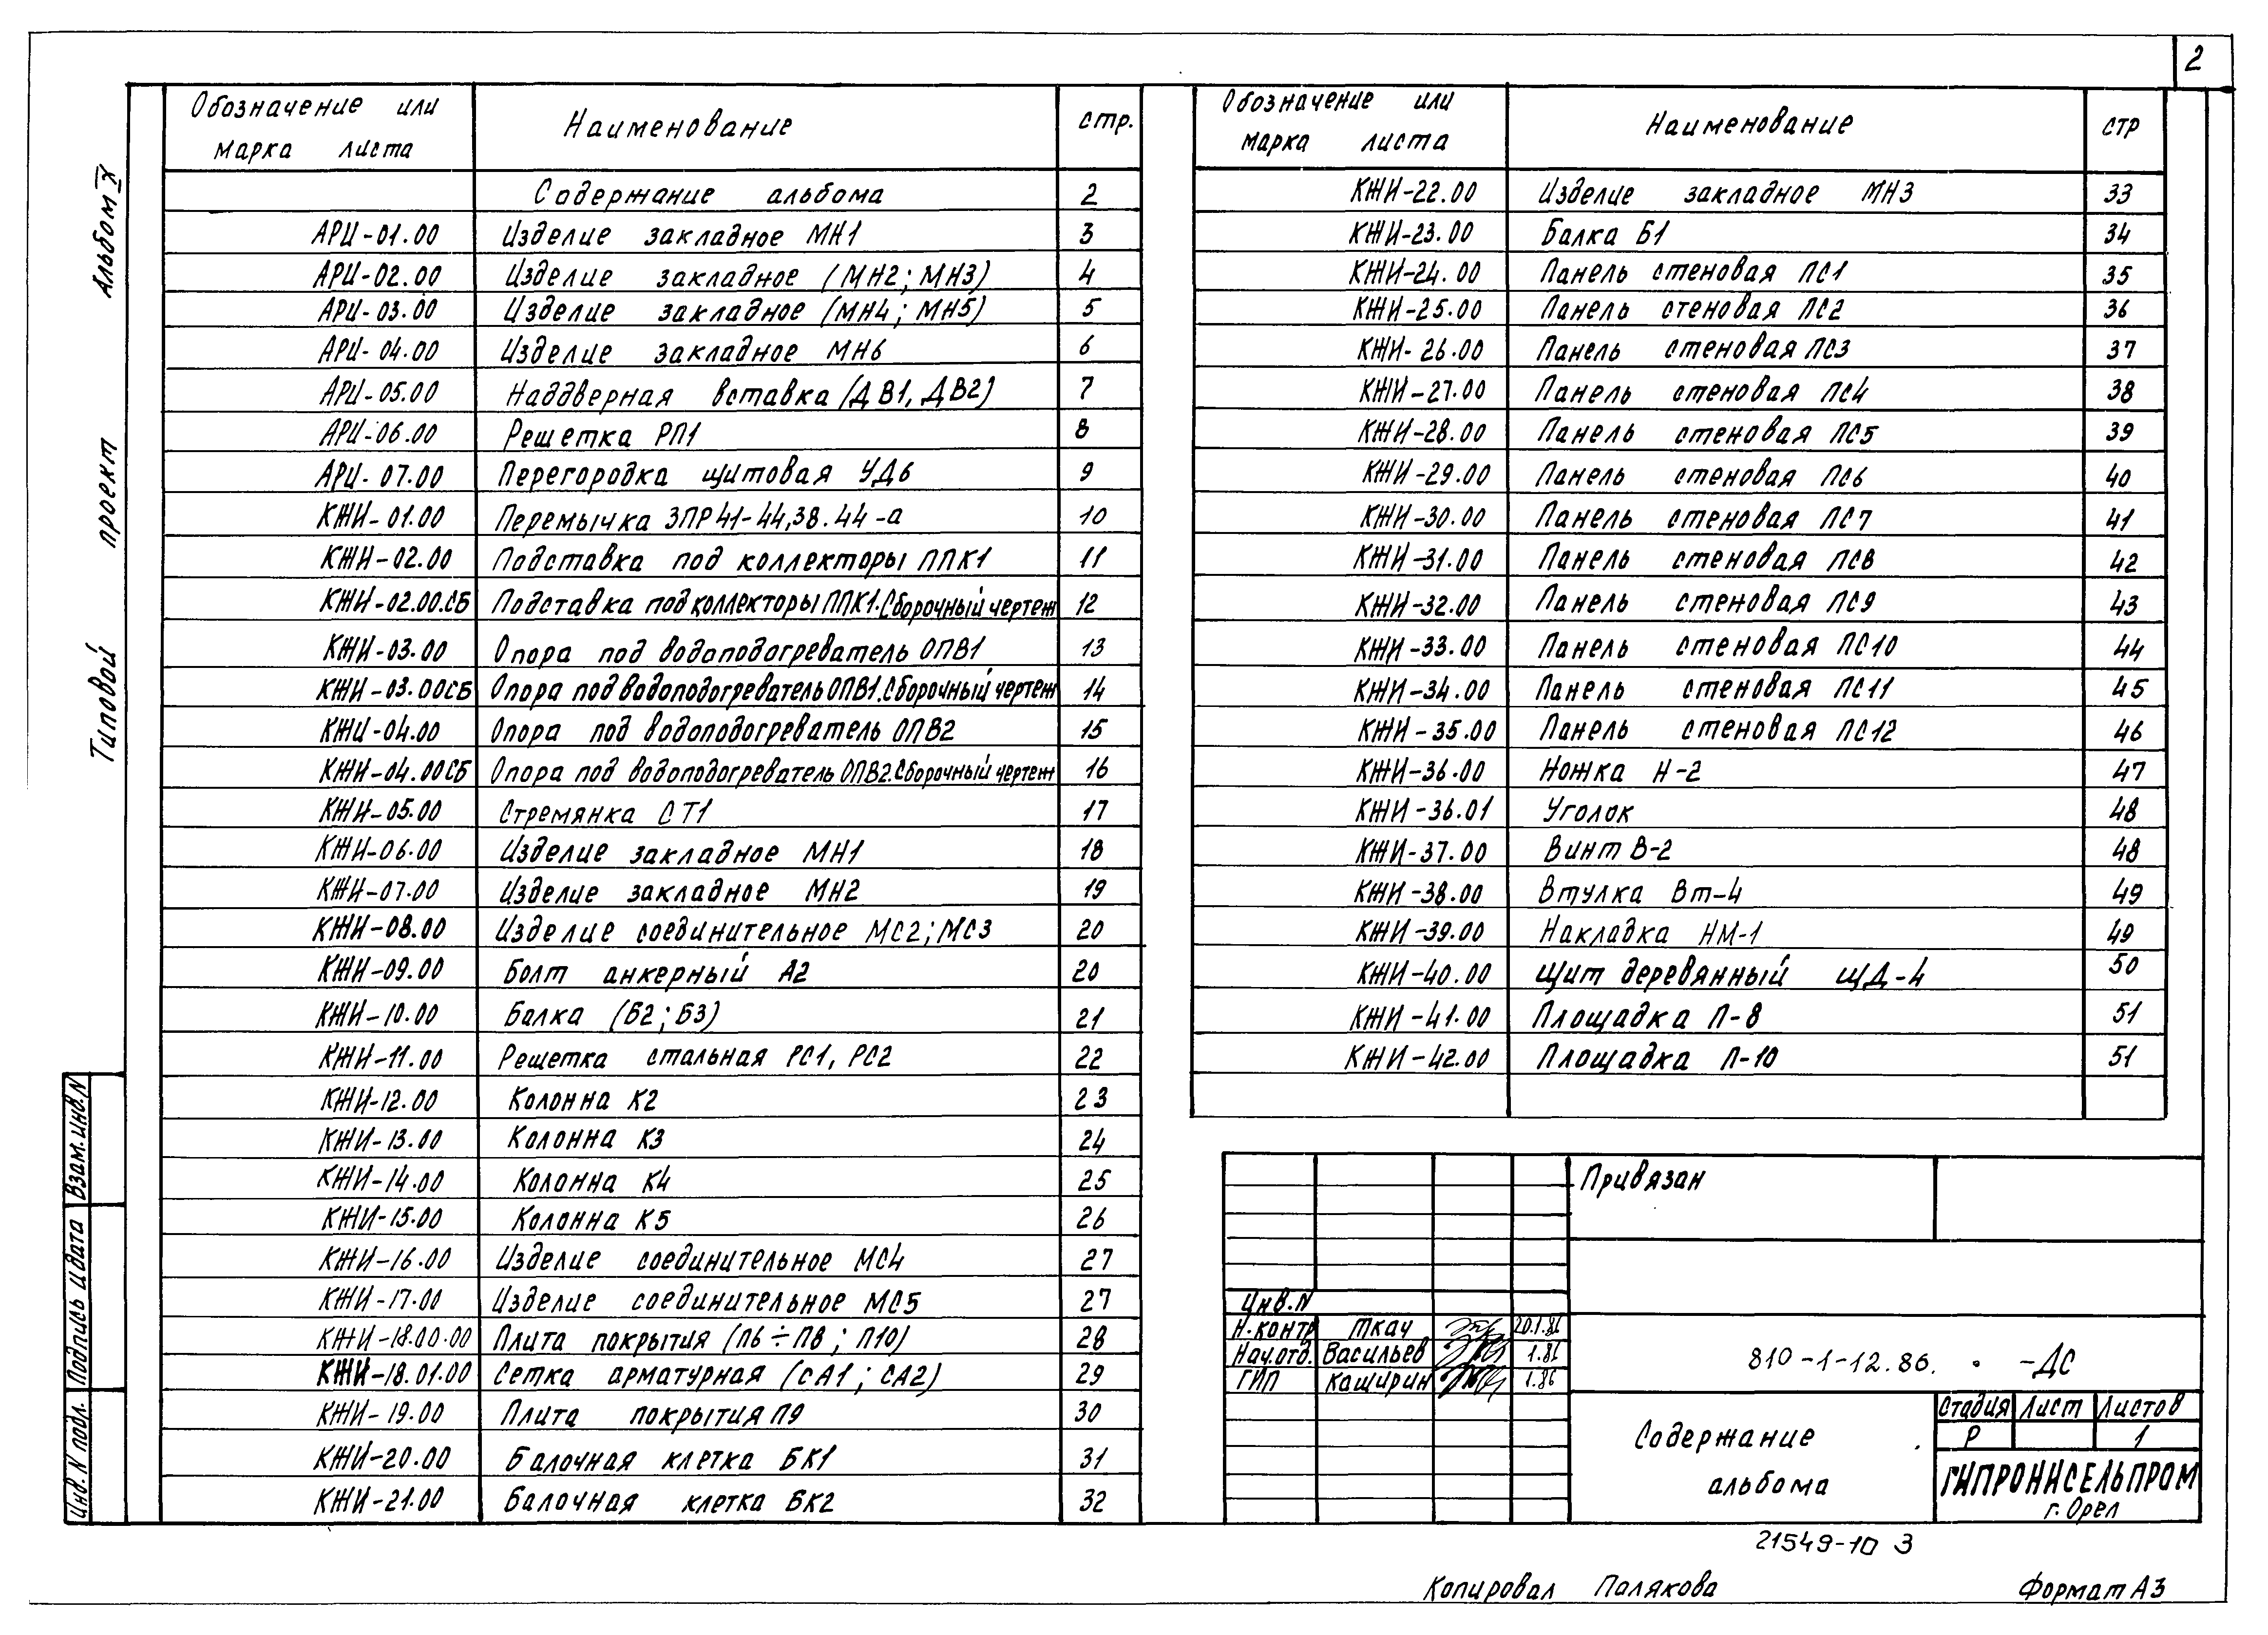 2
Альбом X
Типовой проект
Обозначение или марка листа Наименование стр.
Содержание альбома 2
АРИ-01.00 Изделие закладное МН1 3
АРИ-02.00 Изделие закладное (МН2; МН3) 4
АРИ-03.00 Изделие закладное (МН4; МН5) 5
АРИ-04.00 Изделие закладное МН6 6
АРИ-05.00 Наддверная вставка (ДВ1, ДВ2) 7
АРИ-06.00 Решетка РП1 8
АРИ-07.00 Перегородка щитовая УД6 9
КЖИ-01.00 Перемычка 3ПР41-44,38.44-а 10
КЖИ-02.00 Подставка под коллекторы ППК1 11
КЖИ-02.00.СБ Подставка под коллекторы ППК1. Сборочный чертеж 12
КЖИ-03.00 Опора под водоподогреватель ОПВ1 13
КЖИ-03.00СБ Опора под водоподогреватель ОПВ1. Сборочный чертеж 14
КЖИ-04.00 Опора под водоподогреватель ОПВ2 15
КЖИ-04.00СБ Опора под водоподогреватель ОПВ2. Сборочный чертеж 16
КЖИ-05.00 Стремянка СТ1 17
КЖИ-06.00 Изделие закладное МН1 18
КЖИ-07.00 Изделие закладное МН2 19
КЖИ-08.00 Изделие соединительное МС2; МС3 20
КЖИ-09.00 Болт анкерный А2 20
КЖИ-10.00 Балка (Б2; Б3) 21
КЖИ-11.00 Решетка стальная РС1, РС2 22
КЖИ-12.00 Колонна К2 23
КЖИ-13.00 Колонна К3 24
КЖИ-14.00 Колонна К4 25
КЖИ-15.00 Колонна К5 26
КЖИ-16.00 Изделие соединительное МС4 27
КЖИ-17.00 Изделие соединительное МС5 27
КЖИ-18.00.00 Плита покрытия (П6÷П8; П10) 28
КЖИ-18.01.00 Сетка арматурная (СА1; СА2) 29
КЖИ-19.00 Плита покрытия П9 30
КЖИ-20.00 Балочная клетка БК1 31
КЖИ-21.00 Балочная клетка БК2 32
Обозначение или марка листа Наименование стр
КЖИ-22.00 Изделие закладное МН3 33
КЖИ-23.00 Балка Б1 34
КЖИ-24.00 Панель стеновая ПС1 35
КЖИ-25.00 Панель стеновая ПС2 36
КЖИ-26.00 Панель стеновая ПС3 37
КЖИ-27.00 Панель стеновая ПС4 38
КЖИ-28.00 Панель стеновая ПС5 39
КЖИ-29.00 Панель стеновая ПС6 40
КЖИ-30.00 Панель стеновая ПС7 41
КЖИ-31.00 Панель стеновая ПС8 42
КЖИ-32.00 Панель стеновая ПС9 43
КЖИ-33.00 Панель стеновая ПС10 44
КЖИ-34.00 Панель стеновая ПС11 45
КЖИ-35.00 Панель стеновая ПС12 46
КЖИ-36.00 Ножка Н-2 47
КЖИ-36.01 Уголок 48
КЖИ-37.00 Винт В-2 48
КЖИ-38.00 Втулка Вт-4 49
КЖИ-39.00 Накладка НМ-1 49
КЖИ-40.00 Щит деревянный ЩД-4 50
КЖИ-41.00 Площадка П-8 51
КЖИ-42.00 Площадка П-10 51
Взам. инв. N
Подпись и дата
Инв. N подл.
Привязан
Инв. N
Н.контр Ткач 20.1.86
Нач.отд. Васильев 1.86
ГИП Каширин 1.86
810-1-12.86. -ДС
Содержание
альбома
Стадия Лист Листов
Р 1
ГИПРОНИСЕЛЬПРОМ
г. Орел
21549-10 3
Копировал Полякова Формат А3